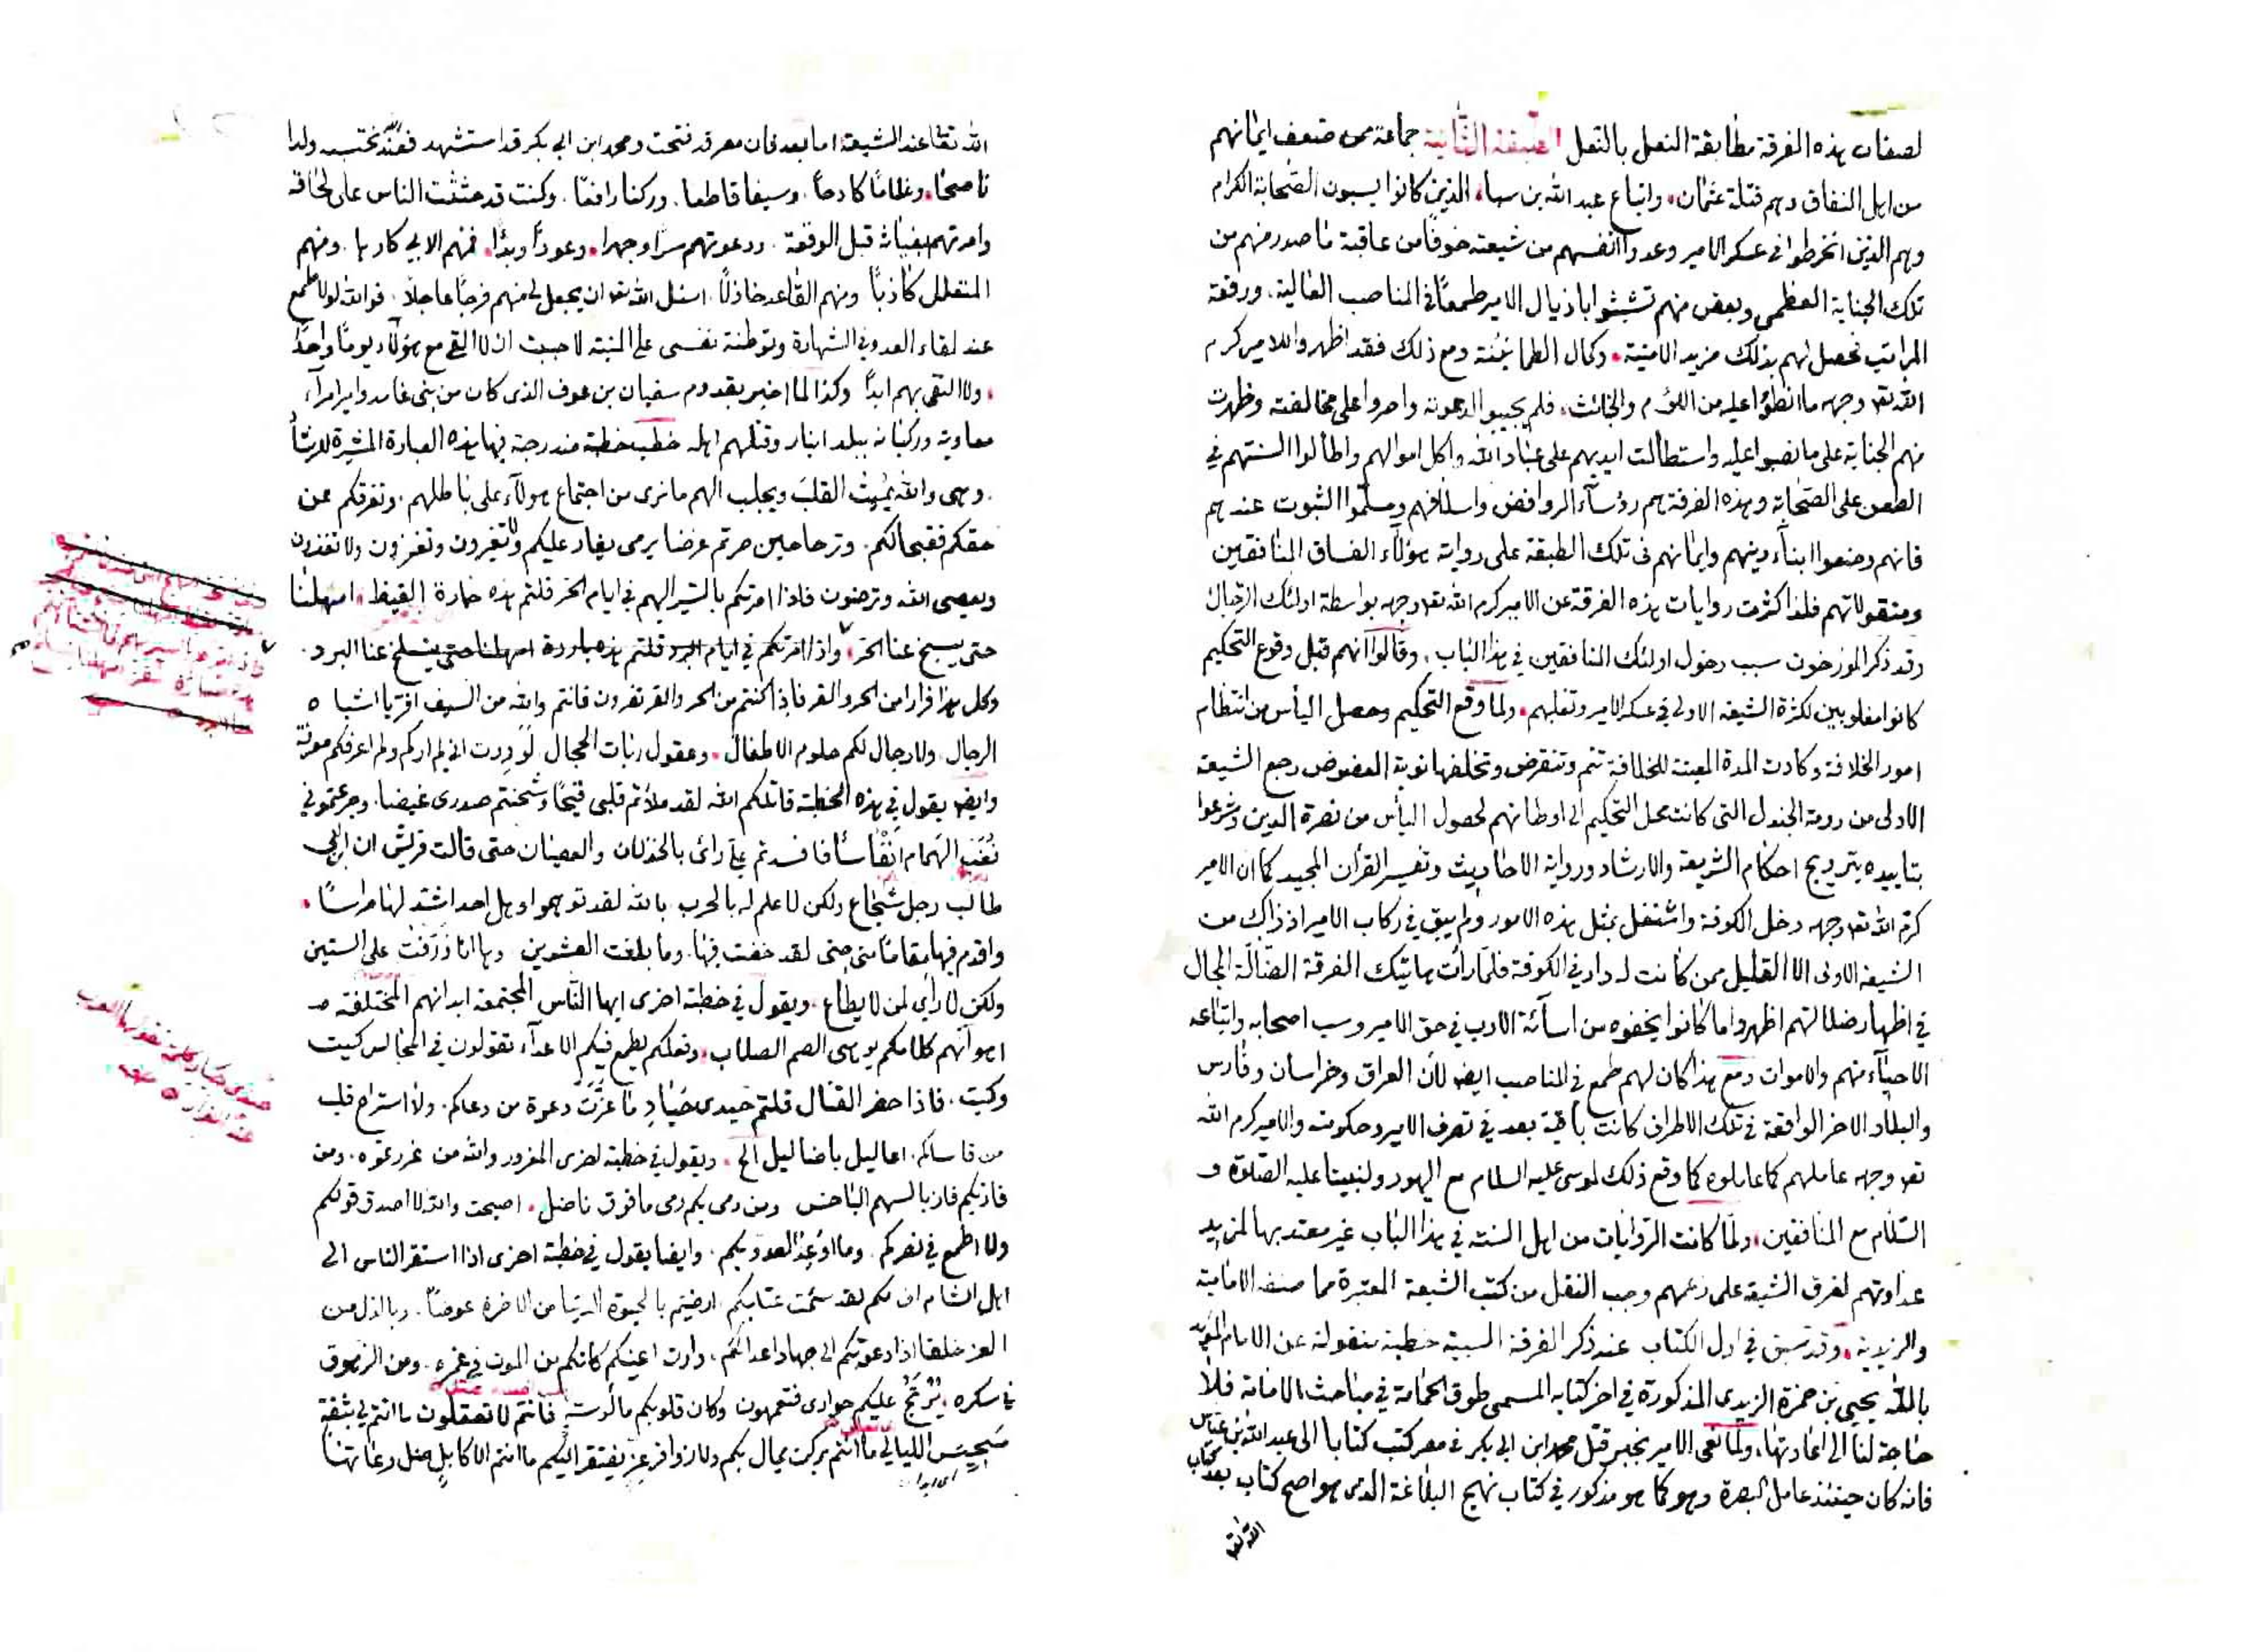 لصفات هذه الفرقة مطابقة النعل بالنعل الطبقة الثانية جماعة من ضعف ايمانهم
من اهل النفاق وهم قتلة عثمان، واتباع عبد الله بن سبا، الذين كانوا يسبون الصحابة الكرام
وهم الذين انخرطوا في عسكر الامير وعدوا انفسهم من شيعته خوفًا من عاقبة ما صدر منهم من
تلك الجناية العظمى وبعض منهم تشبثوا باذيال الامير طمعًا في المناصب العالية، ورفعة
المراتب فحصل لهم بذلك مزيد الامنية، وكمال الطمانينة ومع ذلك فقد اظهروا للامير كرم
الله تعه وجهه ما انطوا عليه من اللؤم والخبائث، فلم يجيبوا لدعوته واصروا على مخالفته وظهرت
منهم الجناية على ما نصبوا عليه واستطالت ايديهم على عباد الله واكل اموالهم واطالوا السنتهم في
الطعن على الصحابة وهذه الفرقة هم رؤسآء الروافض واسلافهم ومسلموا الثبوت عندهم
فانهم وضعوا ابنآء دينهم وايمانهم في تلك الطبقة على رواية هؤلآء الفساق المنافقين
ومنقولاتهم فلذا كثرت روايات هذه الفرقة عن الامير كرم الله تعه وجهه بواسطة اولئك الرجال
وقد ذكر المورخون سبب دخول اولئك المنافقين في هذا الباب، وقالوا انهم قبل وقوع التحكيم
كانوا مغلوبين لكثرة الشيعة الاولى في عسكر الامير وتغلبهم، ولما وقع التحكيم وحصل اليأس من انتظام
امور الخلافة وكادت المدة المعينة للخلافة تتم وتنقرض وتخلفها نوبة العضوض رجع الشيعة
الاولى من دومة الجندل التي كانت محل التحكيم الى اوطانهم لحصول اليأس من نصرة الدين وشرعوا
بتاييده بترويج احكام الشريعة والارشاد ورواية الاحاديث وتفسير القرآن المجيد كما ان الامير
كرم الله تعه وجهه دخل الكوفة واشتغل بمثل هذه الامور ولم يبق في ركاب الامير اذ ذاك من
الشيعة الاولى الا القليل ممن كانت له دار في الكوفة فلما رأت هاتيك الفرقة الضالة المجال
في اظهار ضلالتهم اظهروا ما كانوا يخفوه من اسآئة الادب في حق الامير وسب اصحابه واتباعه
الاحيآء منهم والاموات ومع هذا كان لهم طمع في المناصب ايضا لان العراق وخراسان وفارس
والبلاد الاخر الواقعة في تلك الاطراف كانت باقية بعد في تصرف الامير وحكومته والامير كرم الله
تعه وجهه عاملهم كما عاملوه كما وقع ذلك لموسى عليه السلام مع اليهود ولنبينا عليه الصلوة و
السلام مع المنافقين، ولما كانت الروايات من اهل السنة في هذا الباب غير معتد بها لمزيد
عداوتهم لفرق الشيعة على زعمهم وجب النقل من كتب الشيعة المعتبرة مما صنفه الامامية
والزيدية، وقد سبق في اول الكتاب عند ذكر الفرقة السبية خطبة منقولة عن الامام المؤيد
بالله يحيى بن حمزة الزيدي المذكورة في اخر كتابه المسمى طوق الحمامة في مباحث الامامة فلا
حاجة لنا الى اعادتها، ولما نعى الامير بخبر قتل محمد ابن ابي بكر في مصر كتب كتابا الى عبد الله بن عباس
فانه كان حينئذ عامل البصرة وهو كما هو مذكور في كتاب نهج البلاغة الذي هو اصح كتاب بعد كتاب
الله تعا
الله تعا عند الشيعة اما بعد فان مصر قد فتحت ومحمد ابن ابي بكر قد استشهد فعند الله نحتسبه ولدا
ناصحًا، وعاملا كادحًا، وسيفا قاطعا، وركنا رافعًا، وكنت قد حثثت الناس على لحاقه
وامرتهم بغياثه قبل الوقعة، ودعوتهم سرًا وجهرا، وعودًا وبدًا، فمنهم الاتي كارها، ومنهم
المتعلل كاذبًا ومنهم القاعد خاذلًا، اسئل الله تعه ان يجعل لي منهم فرجًا عاجلًا، فوالله لولا طمعي
عند لقاء العدو في الشهادة وتوطنة نفسي على المنية لاحببت ان لا القى مع هؤلآء يومًا واحدًا
، ولا التقى بهم ابدًا وكذا لما اخبر بقدوم سفيان بن عوف الذي كان من بني غامد وامير امرآء
معاوية وركبانه ببلد انبار وقتلهم اهله خطب خطبة مندرجة فيها هذه العبارة المشيرة للارشاد
، وهي والله يميت القلب ويجلب الهم ما نرى من اجتماع هولآء على باطلهم، وتفرقكم عن
حقكم فقبحا لكم، وترحا حين صرتم غرضا يرمى يغار عليكم ولا تغيرون وتغزون ولا تغزون
ويعصى الله وترضون فاذا امرتكم بالسير اليهم في ايام الحر قلتم هذه حمارة القيظ، امهلنا
حتى يسبخ عنا الحر، واذا امرتكم في ايام البرد قلتم هذه باردة امهلنا حتى ينسلخ عنا البرد،
وكل هذا فرارا من الحر والقر فاذا كنتم من الحر والقر تفرون فانتم والله من السيف افر يا اشباه
الرجال، ولا رجال لكم حلوم الاطفال، وعقول ربات الحجال لوددت اني لم اركم ولم اعرفكم معرفة
وايضا يقول في هذه الخطبة قاتلكم الله لقد ملأتم قلبي قيحًا وشحنتم صدري غيضا، وجرعتموني
نغب الهمام انفاسًا فافسدتم علي رائي بالخذلان والعصيان حتى قالت قريش ان ابن ابي
طالب رجل شجاع ولكن لا علم له بالحرب بالله لقد توهموا وهل احد اشد لها مراسًا،
واقدم فيها مقامًا مني حتى لقد نهضت فيها، وما بلغت العشرين وها انا ذرفت على الستين
ولكن لا راي لمن لا يطاع، ويقول في خطبة اخرى ايها الناس المجتمعة ابدانهم المختلفة
اهوآئهم كلامكم يوهي الصم الصلاب، وفعلكم يطمع فيكم الاعدآء تقولون في المجالس كيت
وكيت، فاذا حضر القتال قلتم حيدي حياد ما عزت دعوة من دعاكم، ولا استراح قلب
من قاساكم، اعاليل باضاليل الخ، ويقول في خطبة اخرى المغرور والله من غررتموه، ومن
فاز بكم فاز بالسهم الاخس ومن رمى بكم رمى بافوق ناصل، اصبحت والله لا اصدق قولكم
ولا اطمع في نصركم، وما اوعد العدو بكم، وايضا يقول في خطبة اخرى اذا استنفر الناس الى
اهل الشام اف لكم لقد سئمت عتابكم ارضيتم بالحيوة الدنيا من الاخرة عوضًا، وبالذل من
العز خلفا اذا دعوتكم الى جهاد اعدائكم، دارت اعينكم كانكم من الموت في غمره، ومن الذهول
في سكره، يرتج عليكم حواري فتعمهون وكان قلوبكم مألوسة فانتم لا تعقلون ما انتم لي بثقة
سجيس الليالي ما انتم بركن يمال بكم ولا زوافر عز يفتقر اليكم ما انتم الا كابل ضل رعاتها